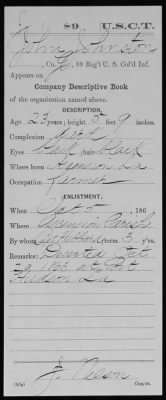 89 U.S.C.T.
John Johnston
, Co. , 89 Reg't U. S. Col'd Inf.
Appears on
Company Descriptive Book
of the organization named above.
DESCRIPTION.
Age 23 years; height 5 feet 9 inches.
Complexion Dark
Eyes black; hair black
Where born La
Occupation Farmer
ENLISTMENT.
When Oct 5, 186
Where Parish
By whom ; term 3 y'rs.
Remarks: Deserted Oct
1863 at Port
Hudson La
J. Nelson
Copyist.